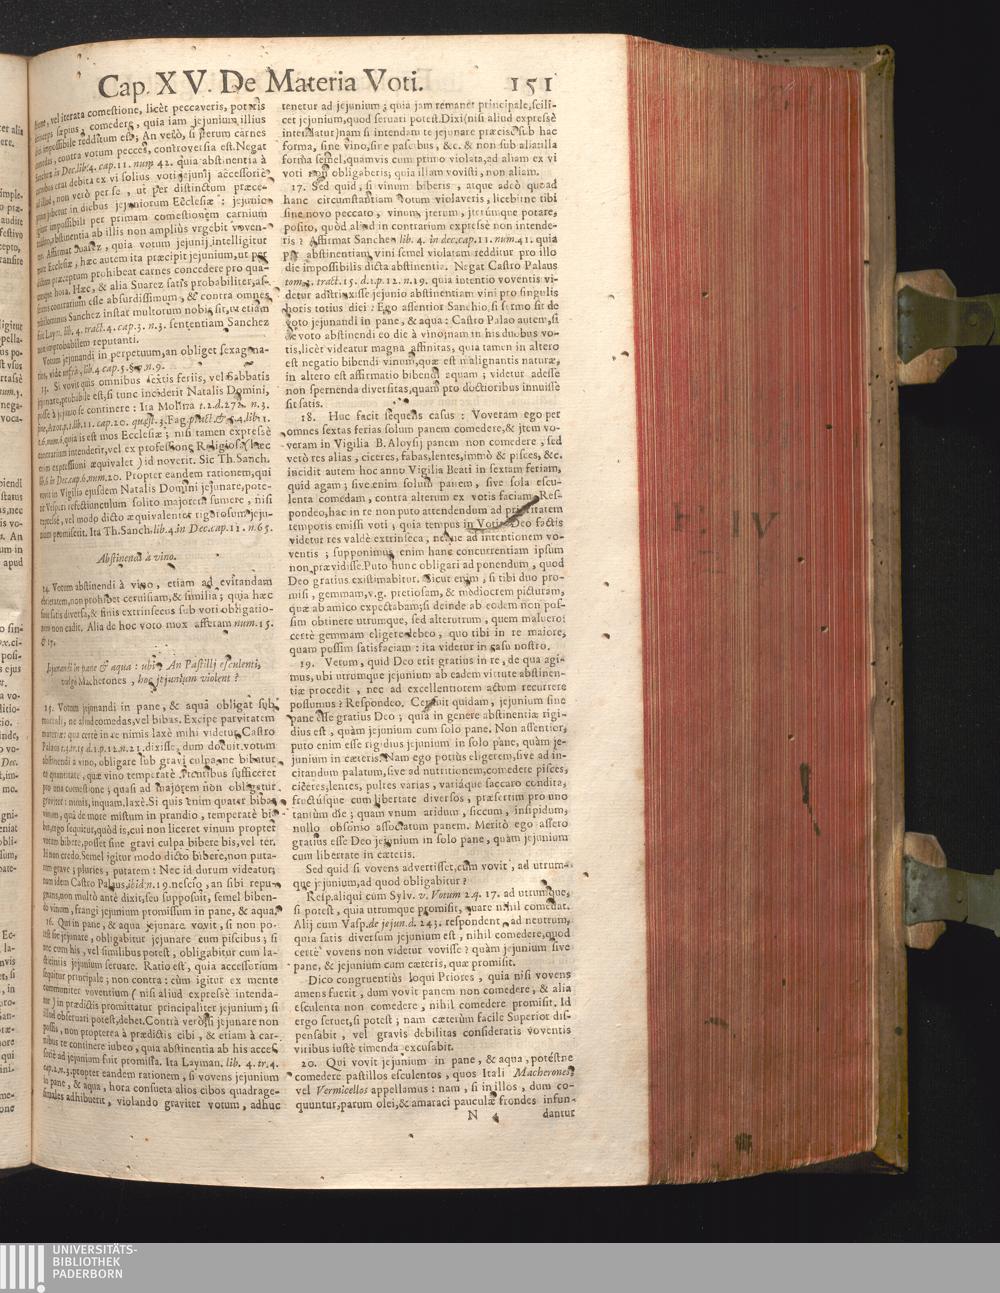 Cap. XV. De Materia Voti. 151
vel iterata comestione, licèt peccaveris, poteris
sæpius comedere, quia jam jejunium illius
impossibile redditum est; An verò, si iterum carnes
comedas, contra votum pecces, controversia est. Negat
Sanchez in Dec. lib. 4. cap. 11. num. 42. quia abstinentia à
carnibus erat debita ex vi solius voti jejunij accessoriè
ad illud, non verò per se, ut per distinctum præce-
ptum jubetur in diebus jejuniorum Ecclesiæ: jejunio
igitur impossibili per primam comestionem carnium
abstinentia ab illis non ampliùs urgebit voven-
Affirmat Suarez, quia votum jejunij, intelligitur
Ecclesiæ, hæc autem ita præcipit jejunium, ut per
præceptum prohibeat carnes concedere pro qua-
hora. Hæc, & alia Suarez satis probabiliter, as-
contrarium esse absurdissimum, & contra omnes,
Sanchez instat multorum nobis sit, ut etiam
Laym. lib. 4. tract. 4. cap. 3. n. 3. sententiam Sanchez
non improbabilem reputanti.
Votum jejunandi in perpetuum, an obliget sexagena-
vide infrà, lib. 4. cap. 5. n. 9.
13. Si vovit quis omnibus sextis feriis, vel Sabbatis
jejunare, probabile est, si tunc inciderit Natalis Domini,
à jejunio se continere: Ita Molina t. 2. d. 272. n. 3.
Azor. p. 1. lib. 11. cap. 20. quæst. 3. Fag.
quia is est mos Ecclesiæ; nisi tamen expressè
contrarium intenderit, vel ex professione Religiosa (hæc
enim expressioni æquivalet) id noverit. Sic Th. Sanch.
in Dec. cap. 6. num. 20. Propter eandem rationem, qui
vovit in Vigilia ejusdem Natalis Domini jejunare, pote-
Vesperi refectiunculum solito majorem sumere, nisi
expressè, vel modo dicto æquivalenter rigorosum jeju-
nium promiserit. Ita Th. Sanch. lib. 4. in Dec. cap. 11. n. 65.
Abstinendi à vino.
14. Votum abstinendi à vino, etiam ad evitandam
ebrietatem, non prohibet cervisiam, & similia; quia hæc
sunt satis diversa, & finis extrinsecus sub voti obligatio-
nem non cadit. Alia de hoc voto mox afferam num. 15.
& 17.
Jejunandi in pane & aqua: ubi, An Pastilli esculenti,
vulgò Macherones, hoc jejunium violent?
15. Votum jejunandi in pane, & aquâ obligat sub
mortali, ne aliud comedas, vel bibas. Excipe parvitatem
materiæ: qua certè in re nimis laxè mihi videtur Castro
Palaus t. 3. tr. 15. d. 1. p. 12. n. 21. dixisse, dum docuit, votum
abstinendi à vino, obligare sub gravi culpa, ne bibatur
ea quantitate, quæ vino temperatè utentibus sufficeret
pro una comestione; quasi ad majorem non obligetur
graviter: nimis, inquam, laxè. Si quis enim quater bibat
vinum, qua de more mistum in prandio, temperatè bi-
bit, ergo sequitur, quòd is, cui non liceret vinum propter
votum bibere, posset sine gravi culpa bibere bis, vel ter.
Id non credo. Semel igitur modo dicto bibere, non puta-
rem grave; pluries, putatem: Nec id durum videatur;
nam idem Castro Palaus, ibid. n. 19. nescio, an sibi repu-
gnans, non multò antè dixit, seu supposuit, semel biben-
do vinum, frangi jejunium promissum in pane, & aqua.
16. Qui in pane, & aqua jejunare vovit, si non po-
test sic jejunare, obligabitur jejunare cum piscibus; si
nec cum his, vel similibus potest, obligabitur cum la-
cticiniis jejunium servare. Ratio est, quia accessorium
sequitur principale; non contra: cùm igitur ex mente
communiter voventium (nisi aliud expressè intenda-
tur) in prædictis promittatur principaliter jejunium; si
illud observari potest, debet. Contrà verò, si jejunare non
possis, non propterea à prædictis cibi, & etiam à car-
nibus te continere iubeo, quia abstinentia ab his acces-
soriè ad jejunium fuit promissa. Ita Layman. lib. 4. tr. 4.
cap. 2. n. 3. propter eandem rationem, si vovens jejunium
in pane, & aqua, hora consueta alios cibos quadrage-
simales adhibuerit, violando graviter votum, adhuc
tenetur ad jejunium; quia jam remanet principale, scili-
cet jejunium, quod servari potest. Dixi (nisi aliud expressè
intendatur) nam si intendam te jejunare præcisè sub hac
forma, sine vino, sine piscibus, &c. & non sub alia, illa
forma semel, quamvis cum primo violata, ad aliam ex vi
voti non obligaberis; quia illam vovisti, non aliam.
17. Sed quid, si vinum biberis, atque adeò quoad
hanc circumstantiam votum violaveris, licebitne tibi
sine novo peccato, vinum iterum, iterumque potare,
posito, quòd aliud in contrarium expressè non intende-
ris? Affirmat Sanchez lib. 4. in dec. cap. 11. num. 41. quia
per abstinentiam vini semel violatam redditur pro illo
die impossibilis dicta abstinentia. Negat Castro Palaus
tom. 3. tract. 15. d. 1. p. 12. n. 19. quia intentio voventis vi-
detur adstrinxisse jejunio abstinentiam vini pro singulis
horis totius diei: Ego assentior Sanchio, si sermo sit de
voto jejunandi in pane, & aqua: Castro Palao autem, si
de voto abstinendi eo die à vino; nam in his duobus vo-
tis, licèt videatur magna affinitas, quia tamen in altero
est negatio bibendi vinum, quæ est malignantis naturæ,
in altero est affirmatio bibendi aquam; videtur adesse
non spernenda diversitas, quam pro doctioribus innuisse
sit satis.
18. Huc facit sequens casus: Voveram ego per
omnes sextas ferias solum panem comedere, & item vo-
veram in Vigilia B. Aloysij panem non comedere, sed
verò res alias, ciceres, fabas, lentes, immò & pisces, &c.
incidit autem hoc anno Vigilia Beati in sextam feriam,
quid agam; sive enim solum panem, sive sola escu-
lenta comedam, contra alterum ex votis faciam. Res-
pondeo, hac in re non puto attendendum ad prioritatem
temporis emissi voti; quia tempus in Votis Deo factis
videtur res valdè extrinseca, neque ad intentionem vo-
ventis; supponimus enim hanc concurrentiam ipsum
non prævidisse. Puto hunc obligari ad ponendum, quod
Deo gratius existimabitur. Sicut enim, si tibi duo pro-
misi, gemmam, v. g. pretiosam, & mediocrem picturam,
quæ ab amico expectabam; si deinde ab eodem non pos-
sim obtinere utrumque, sed alterutrum, quem maluero;
certè gemmam eligere debeo, quo tibi in re maiore,
quam possim satisfaciam: ita videtur in casu nostro.
19. Verum, quid Deo erit gratius in re, de qua agi-
mus, ubi utrumque jejunium ab eadem virtute abstinen-
tiæ procedit, nec ad excellentiorem actum recurrere
possumus? Respondeo. Censuit quidam, jejunium sine
pane esse gratius Deo; quia in genere abstinentiæ rigi-
dius est, quàm jejunium cum solo pane. Non assentior,
puto enim esse rigidius jejunium in solo pane, quàm je-
junium in cæteris. Nam ego potiùs eligerem, sive ad in-
citandum palatum, sive ad nutritionem, comedere pisces,
ciceres, lentes, pultes varias, variáque saccaro condita,
fructúsque cum libertate diversos, præsertim pro uno
tantùm die; quam unum aridum, siccum, insipidum,
nullo obsonio associatum panem. Meritò ego assero
gratius esse Deo jejunium in solo pane, quàm jejunium
cum libertate in cæteris.
Sed quid si vovens advertisset, cùm vovit, ad utrum-
que jejunium, ad quod obligabitur?
Resp. aliqui cum Sylv. v. Votum 2. q. 17. ad utrumque,
si potest, quia utrumque promisit, quare nihil comedat.
Alij cum Vasq. de jejun. d. 243. respondent, ad neutrum,
quia satis diversum jejunium est, nihil comedere, quod
certè vovens non videtur vovisse? quàm jejunium sive
pane, & jejunium cum cæteris, quæ promisit.
Dico congruentiùs loqui Priores, quia nisi vovens
amens fuerit, dum vovit panem non comedere, & alia
esculenta non comedere, nihil comedere promisit. Id
ergo servet, si potest; nam cæterùm facile Superior dis-
pensabit, vel gravis debilitas consideratis voventis
viribus iustè timenda excusabit.
20. Qui vovit jejunium in pane, & aqua, potéstne
comedere pastillos esculentos, quos Itali Macherones,
vel Vermicellos appellamus: nam, si in illos, dum co-
quuntur, parum olei, & amaraci pauculæ frondes infun-
N 4 dantur
IV
UNIVERSITÄTS-
BIBLIOTHEK
PADERBORN